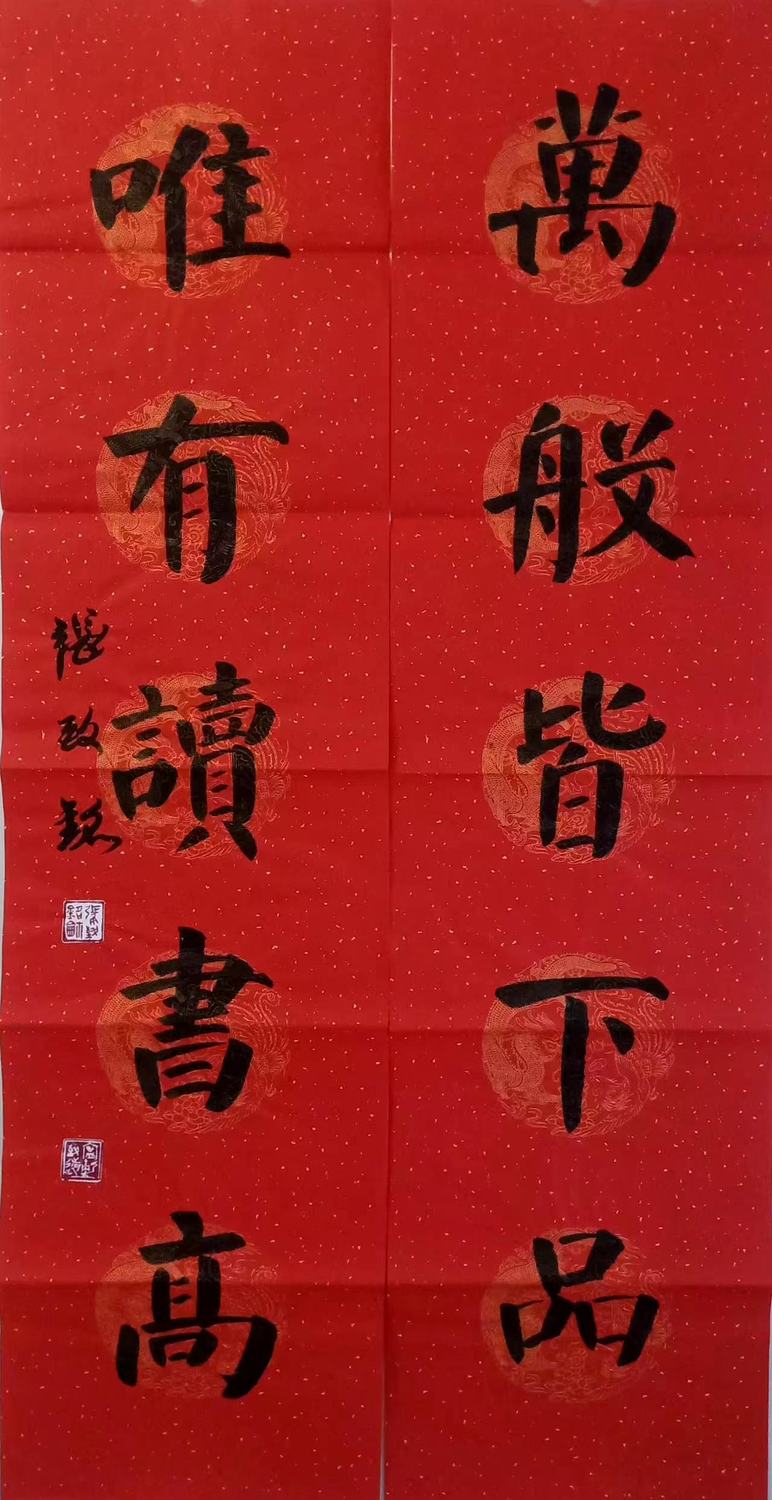 萬般皆下品
唯有讀書高
張政銘